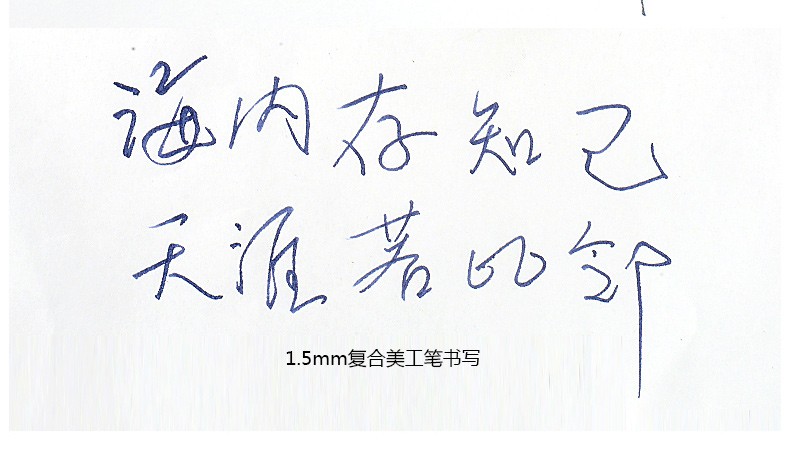 海内存知己
天涯若比邻
1.5mm复合美工笔书写